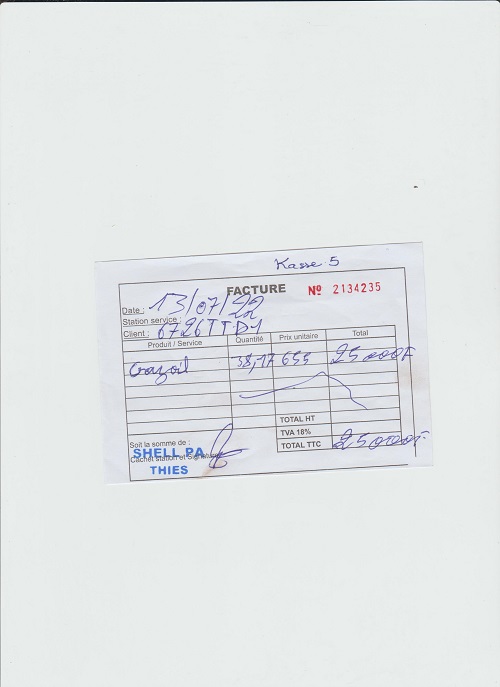 Kasse 5
FACTURE Nº 2134235
Date : 13/07/22
Station service :
Client : 6726TTD1
Produit / Service Quantité Prix unitaire Total
Gazoil 38,17 655 25000F
TOTAL HT
TVA 18%
TOTAL TTC 25000F
Soit la somme de :
SHELL PA
Cachet station et Signature
THIES